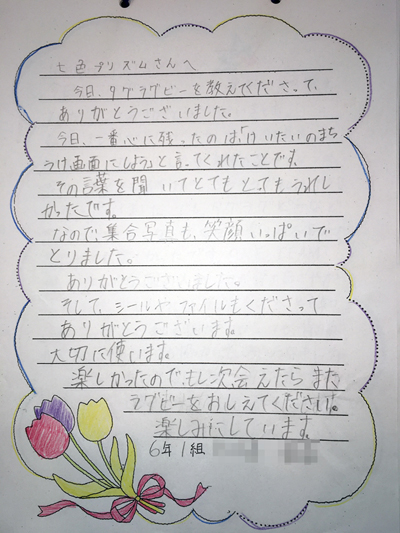 七色プリズムさんへ
今日、タグラグビーを教えてくださって、
ありがとうございました。
今日、一番心に残ったのは、「けいたいのまち
うけ画面にしよう」と言ってくれたことです。
その言葉を聞いてとてもとってもうれし
かったです。
なので、集合写真も、笑顔いっぱいで
とりました。
ありがとうございました。
そして、シールやファイルもくださって
ありがとうございます。
大切に使います。
楽しかったのでもし次会えたらまた
ラグビーをおしえてください。
楽しみにしています。
6年1組